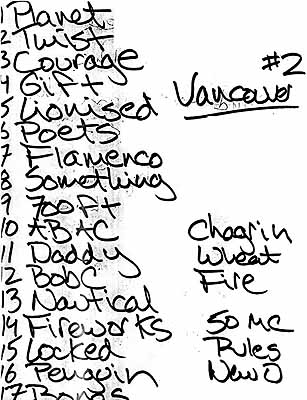 1 Planet
2 Twist
3 Courage
4 Gift
5 Lionised
6 Poets
7 Flamenco
8 Something
9 700 ft
10 ABAC
11 Daddy
12 BobC
13 Nautical
14 Fireworks
15 Locked
16 Penguin
17 Bones
#2
Vancouver
Chagrin
Wheat
Fire
50 MC
Rules
New O